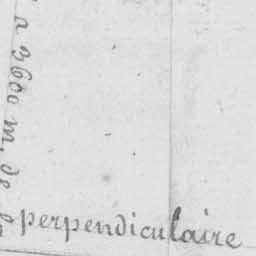 a 3600 m. de
perpendiculaire